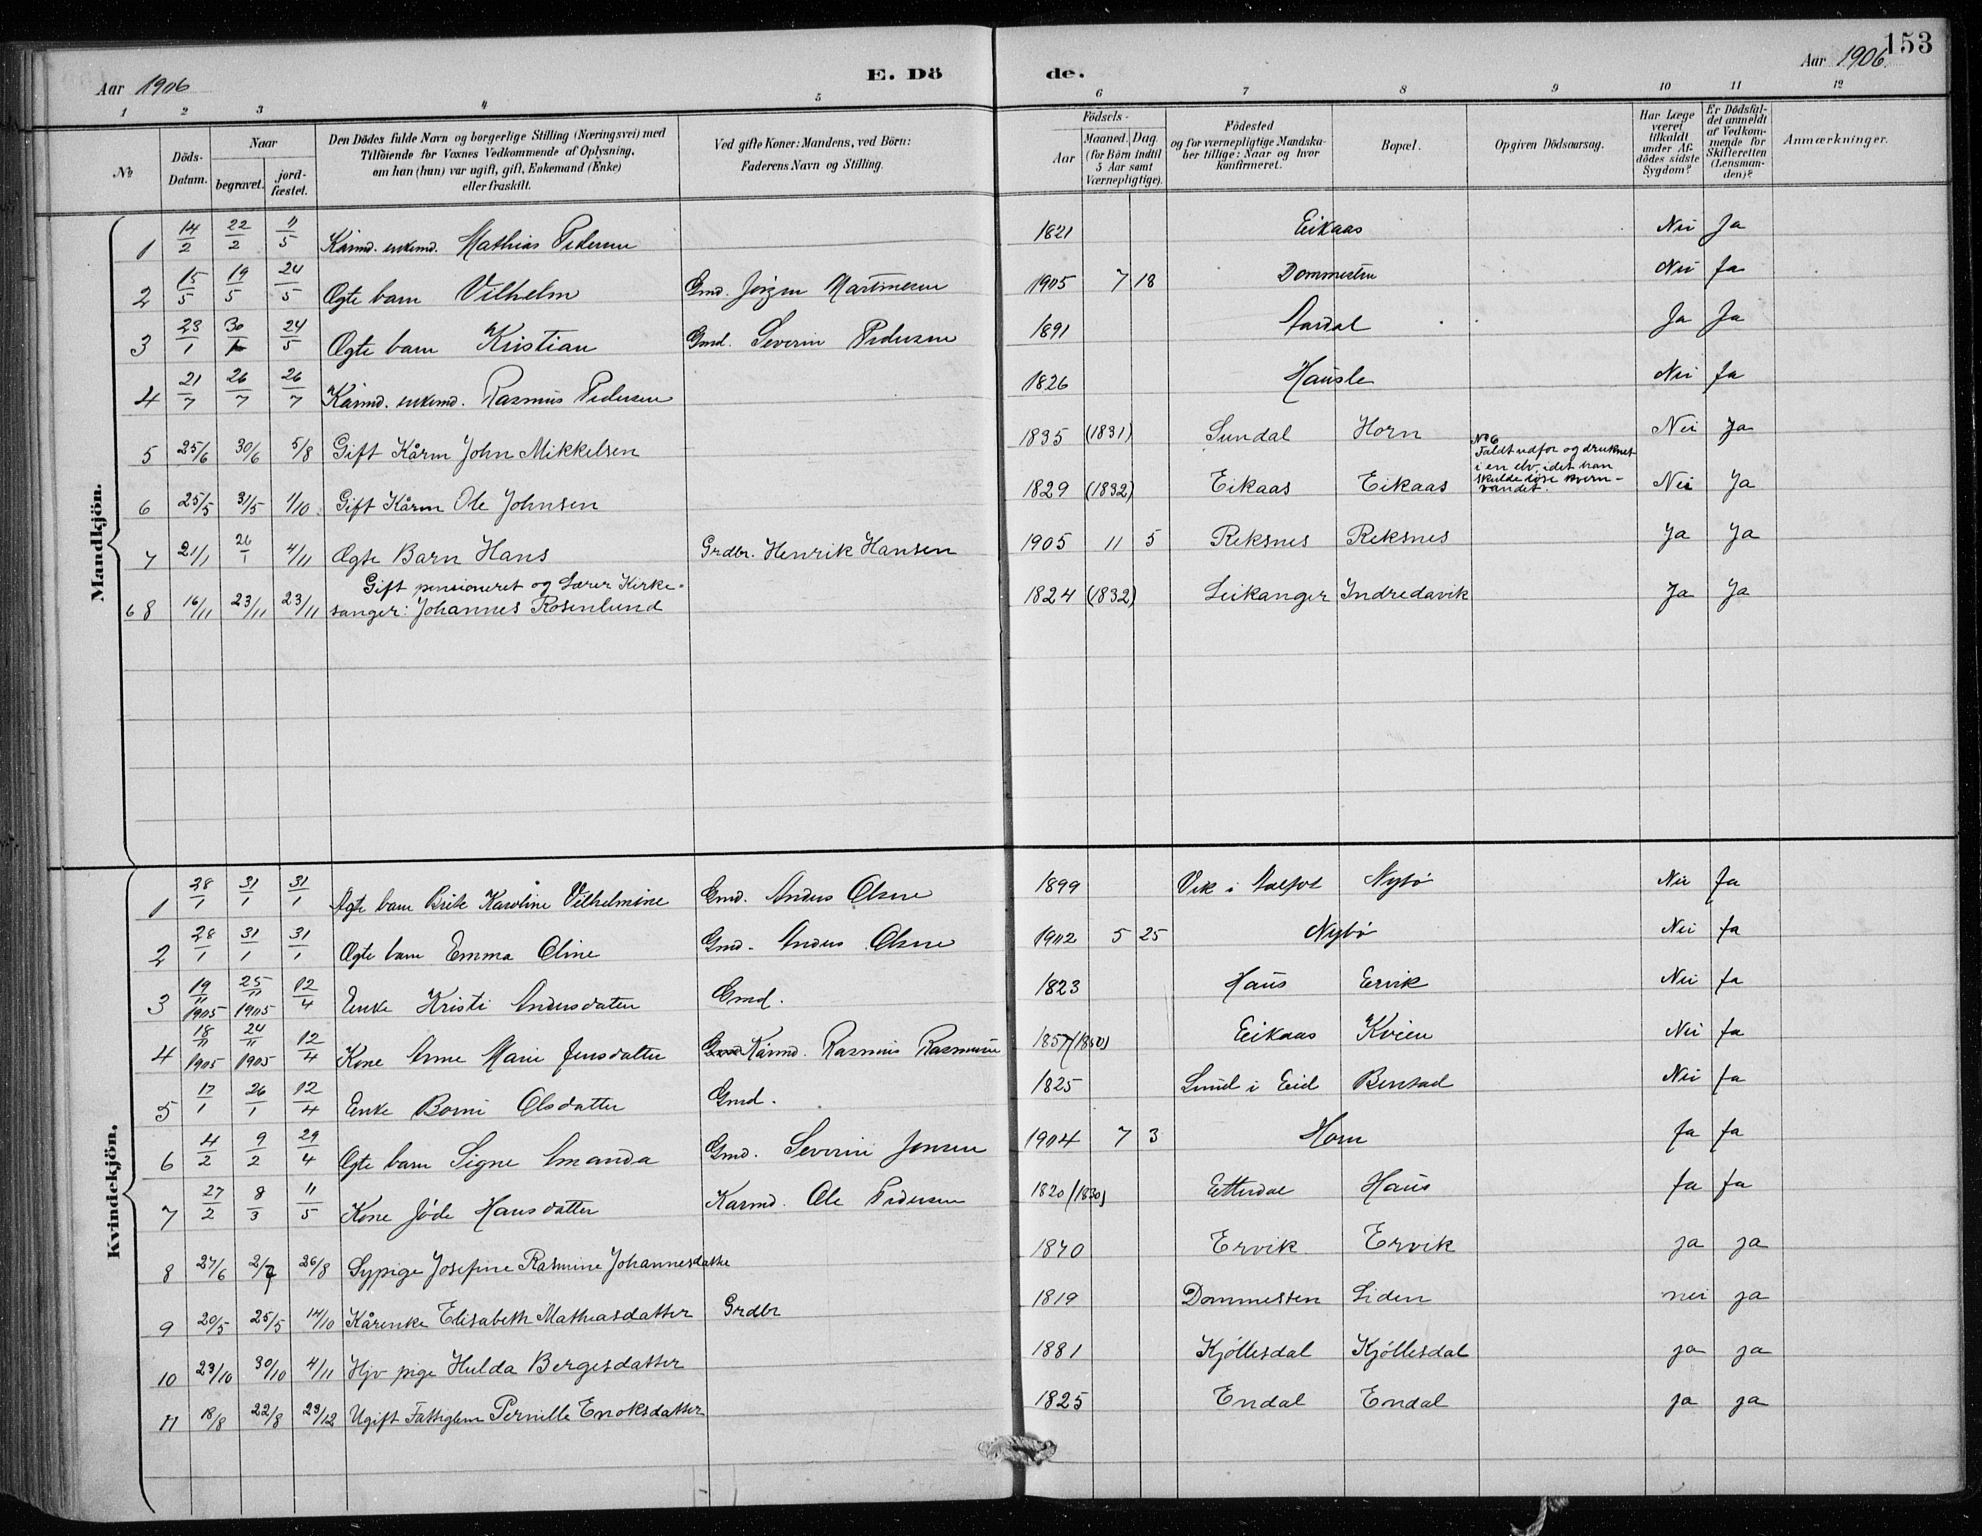 153
Aar 1906
E. Dö
de.
Aar 1906.
1 2 3 4 5 6 7 8 9 10 11 12
No
Döds-Datum.
Naar
begravet.
jord-fæstet.
Den Dödes fulde Navn og borgerlige Stilling (Næringsvei) med
Tilföiende for Voxnes Vedkommende af Oplysning,
om han (hun) var ugift, gift, Enkemand (Enke)
eller fraskilt.
Ved gifte Koner: Mandens, ved Börn:
Faderens Navn og Stilling.
Födsels-
Aar
Maaned. Dag.
(for Börn indtil
5 Aar samt
Værnepligtige).
Födested
og for værnepligtige Mandska-
ber tillige: Naar og hvor
konfirmeret.
Bopæl.
Opgiven Dödsaarsag.
Har Læge
været
tilkaldt
under Af-
dödes sidste
Sygdom?
Er Dödsfal-
det anmeldt
af Vedkom-
mende for
Skifteretten
(Lensman-
den)?
Anmærkninger.
Mandkjön.
1 14/2 22/2 11/5 Kårmd. enkemd. Mathias Pedersen 1821 Eikaas Nei Ja
2 15/5 19/5 24/5 Ægte barn Vilhelm Gmd. Jørgen Martinesen 1905 7 18 Dommesten Nei Ja
3 23/1 30/1 24/5 Ægte barn Kristian Gmd. Severin Pedersen 1891 Aardal Ja Ja
4 21/7 26/7 26/7 Kårmd. enkemd. Rasmus Pedersen 1826 Hausle Nei Ja
5 25/6 30/6 5/8 Gift Kårm John Mikkelsen 1835 (1831) Sundal Horn Nei Ja
No 6
Faldt udfor og druknet
i en elv, idet han
skulde løse kvern-
vandet.
6 25/5 31/5 1/10 Gift Kårm Ole Johnsen 1829 (1832) Eikaas Eikaas Nei Ja
7 21/1 26/1 4/11 Ægte Barn Hans Grdbr. Henrik Hansen 1905 11 5 Reksnes Reksnes Ja Ja
Gift pensioneret og Lærer Kirke-
6 8 16/11 23/11 23/11 sanger: Johannes Rosenlund 1824 (1832) Leikanger Indredavik Ja Ja
Kvindekjön.
1 28/1 31/1 31/1 Ægte barn Brite Karoline Vilhelmine Gmd. Anders Olsen 1899 Vik i Aalfot Nybø Nei Ja
2 28/1 31/1 31/1 Ægte barn Emma Oline Gmd. Anders Olsen 1902 5 25 Nybø Nei Ja
3 19/11 1905 25/11 1905 12/4 Enke Kristi Andersdatter Gmd. 1823 Haus Ervik Nei Ja
4 18/11 1905 24/11 1905 12/4 Kone Anne Marie Jensdatter Gmd Kårmd. Rasmus Rasmusen 1857/(1850) Eikaas Kvien Nei Ja
5 17/1 26/1 12/4 Enke Borni Olsdatter Gmd. 1825 Lund i Eid Benstad Nei Ja
6 4/2 9/2 29/4 Ægte barn Signe Amanda Gmd. Severin Jonsen 1904 7 3 Horn Ja Ja
7 27/2 8/3 11/5 Kone Jøde Hansdatter Karmd. Ole Pedersen 1820/(1830) Etterdal Haus Ja Ja
8 27/6 2/7 26/8 Sypige Josefine Rasmine Johannesdatter 1870 Ervik Ervik ja ja
9 20/5 25/5 14/10 Kårenke Elisabeth Mathiasdatter Grdbr 1819 Dommesten Liden nei ja
10 23/10 30/10 4/11 Hjv pige Hulda Bergesdatter 1881 Kjöllesdal Kjöllesdal ja ja
11 18/8 22/8 23/12 Ugift Fattiglem Pernille Enoksdatter 1825 Endal Endal ja ja